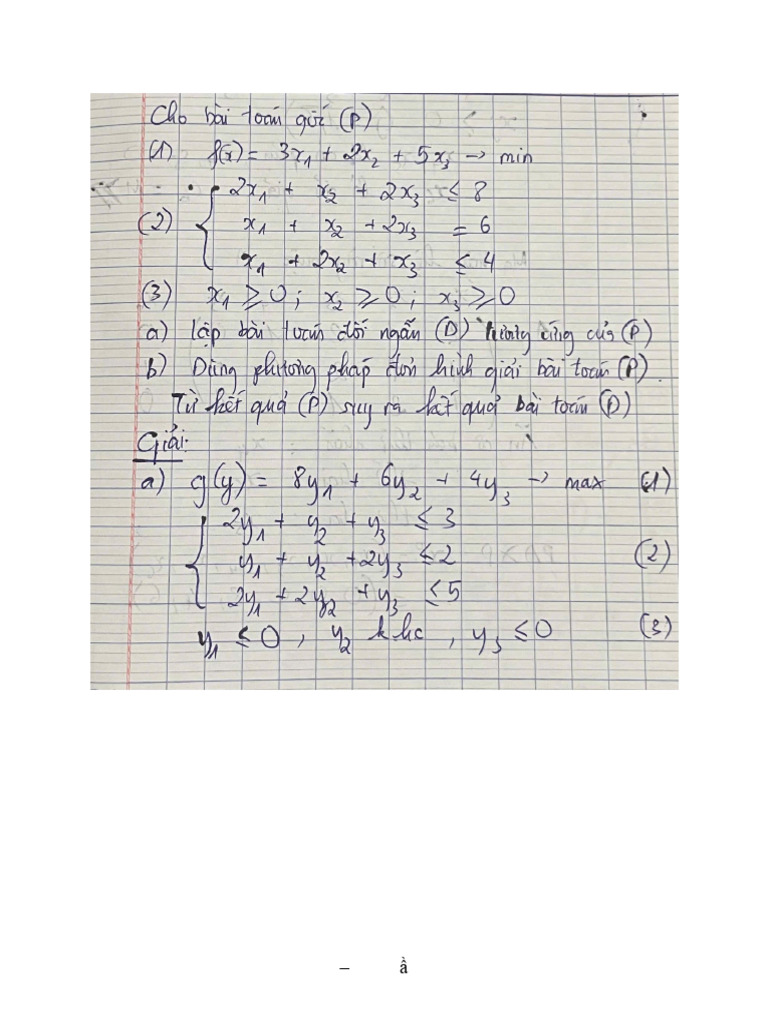 Cho bài toán gốc (P)
(1) f(x) = 3x₁ + 2x₂ + 5x₃ → min
2x₁ + x₂ + 2x₃ ≤ 8
(2) { x₁ + x₂ + 2x₃ = 6
x₁ + 2x₂ + x₃ ≤ 4
(3) x₁ ≥ 0 ; x₂ ≥ 0 ; x₃ ≥ 0
a) lập bài toán đối ngẫu (D) tương ứng của (P)
b) Dùng phương pháp đơn hình giải bài toán (P).
Từ kết quả (P) suy ra kết quả bài toán (D)
Giải:
a) g(y) = 8y₁ + 6y₂ + 4y₃ → max (1)
2y₁ + y₂ + y₃ ≤ 3
{ y₁ + y₂ + 2y₃ ≤ 2 (2)
2y₁ + 2y₂ + y₃ ≤ 5
y₁ ≤ 0 , y₂ khc , y₃ ≤ 0 (3)
– ầ